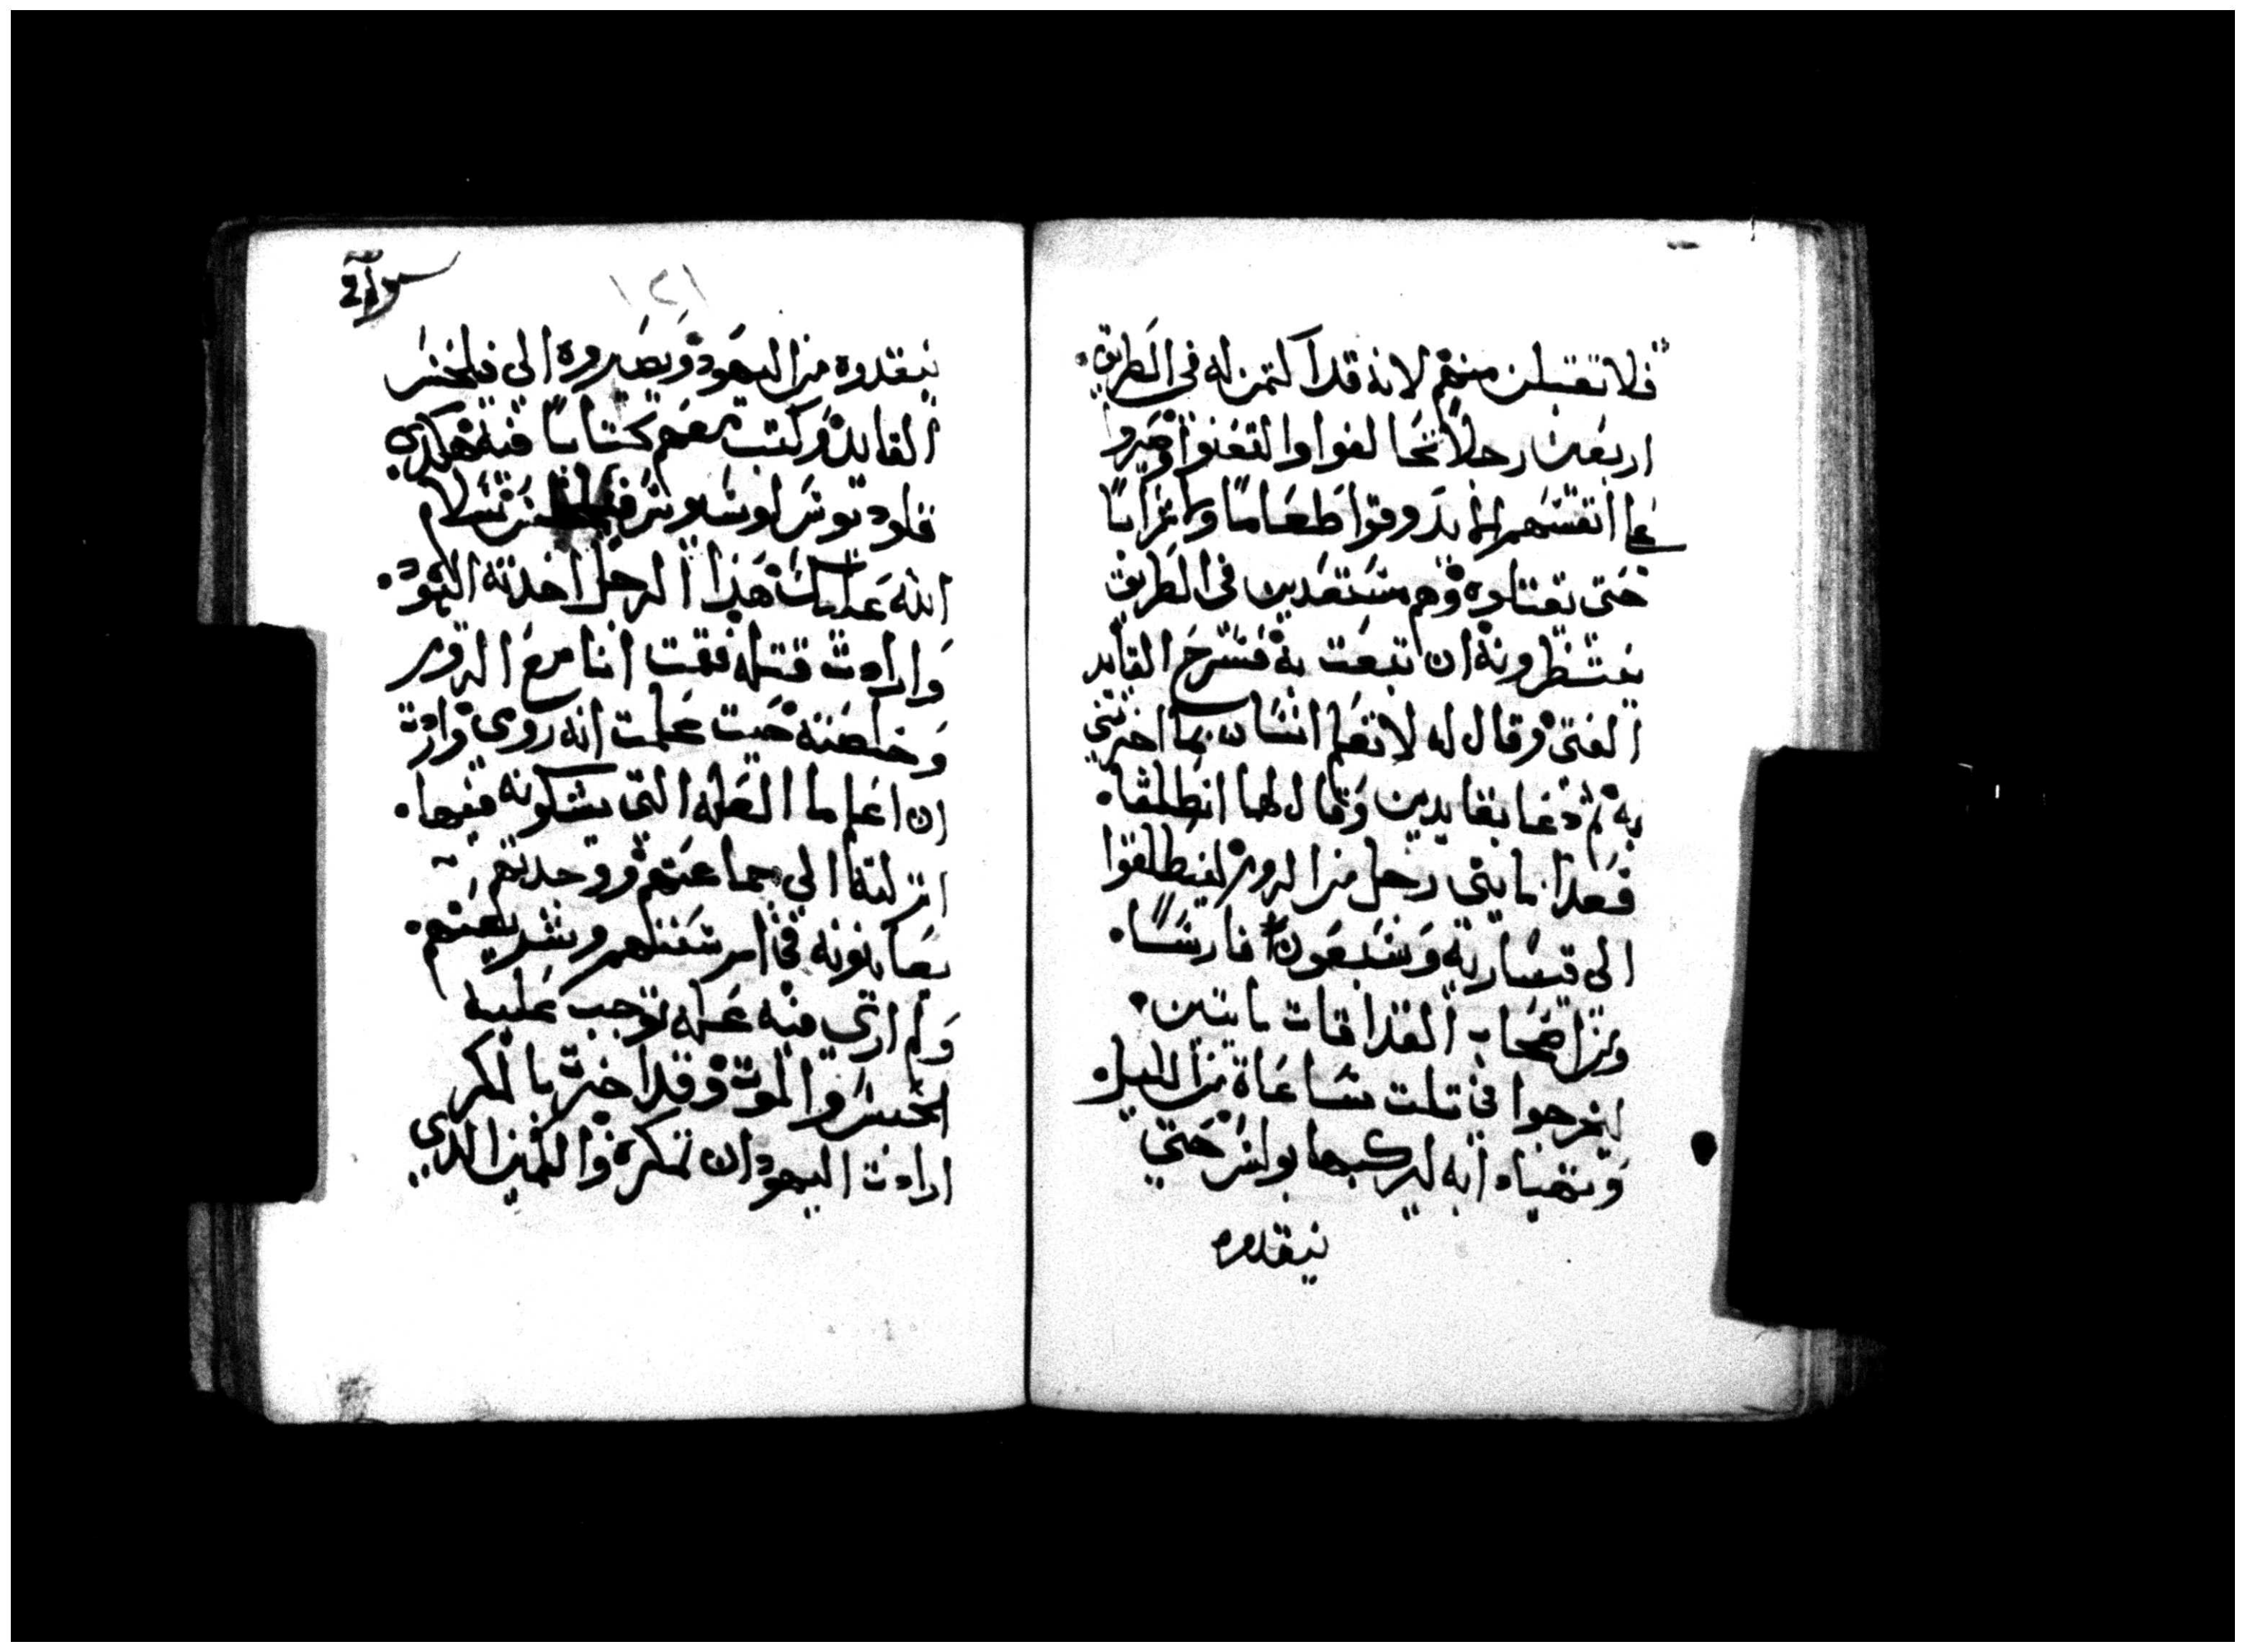 فلا تقبلن منهم لانه قد اكتمن له في الطريق.
اربعين رجلا تحالفوا والتعنوا وحرموا
علي انفسهم الا يدوقوا طعاما ولا شرابا
حتي يقتلوه وهم مستعدين في الطريق
ينتظرونه ان تبعت به فسرح القايد
الفتي وقال له لا تعلم انسان بما اخبرتني
به ثم دعا بقايدين وقال لهما انطلقا.
فعدا مايتي رجل من الروم لينطلقوا
الي قيسارية وسبعون فارسا.
ومن اصحاب القدافات مايتين.
ليخرجوا في تلت ساعاة من الليل.
وتهيا دابه ليركبها بولس حتي
ينقدوه
١٢١
ينقدوه من اليهود ويصيروه الي فيلخس
القايد وكتب معهم كتابا فيه هكدي
قلوديوس لوسيوس فيلخس سلام
الله عليك هدا الرجل اخدته اليهود.
وارادت قتله فقمت انا مع الروم
وخلصته حيت علمت انه رومي واردت
ان اعلم ما العله التي يشكونه فيها.
انزلته الي جماعتهم ووجدتهم
يعاتبونه في امر سننهم وشريعتهم.
ولم اري فيه عله توجب عليه
الحبس والموت وقد اخبرت بالمكر
ارادت اليهود ان تمكره والكمين الدي